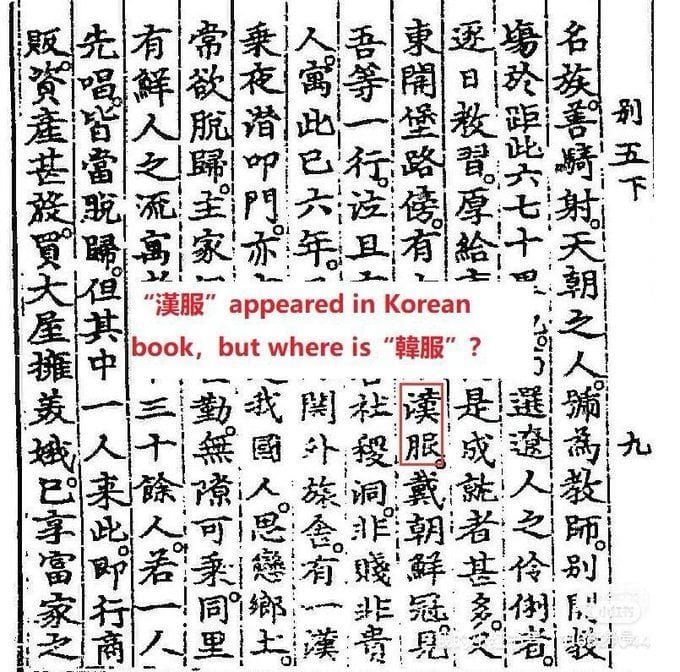 别五下
九
名族。善騎射。天朝之人。號為教師。别開教
塲於距此六七十選遼人之伶俐者。
逐日教習。厚給是成就者甚多。又
東開堡路傍。有漢服。戴朝鮮冠見
吾等一行。泣且社稷洞。非賤非貴
人。寓此已六年。關外旅舍。有一漢
乗夜潜叩門。亦我國人。思戀鄉土。
常欲脫歸。主家勤。無隙可乗。同里
有鮮人之流寓三十餘人。若一人
先唱。皆當脫歸。但其中一人来此。即行商
販。資産甚買大屋擁美娥。已享富家之
“漢服”appeared in Korean
book, but where is“韓服”?